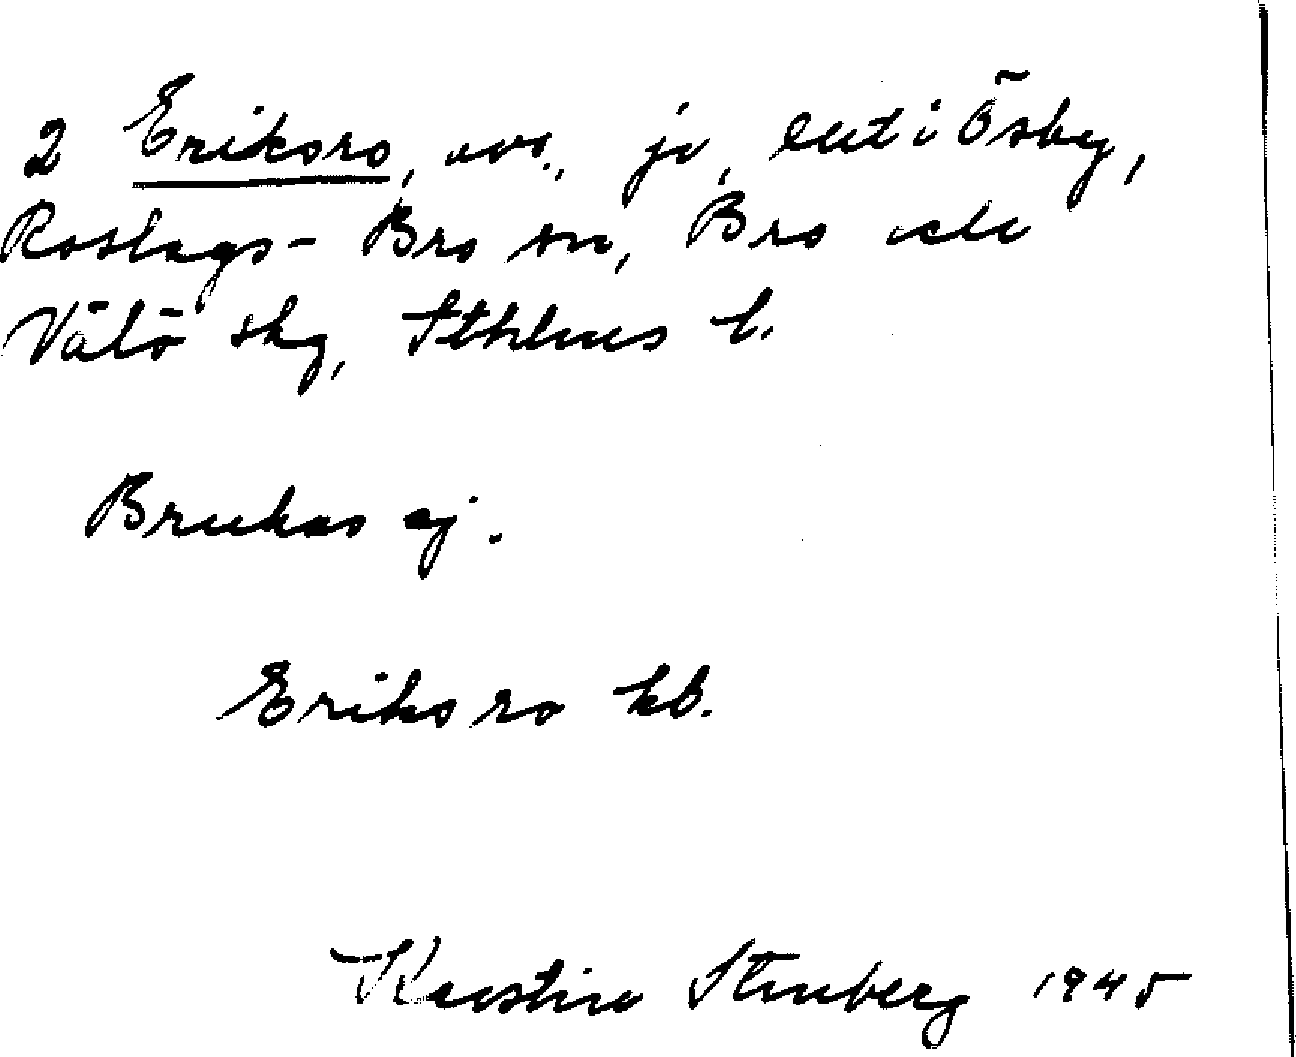 2 Eriksro, avs., jo, ent i Ösby,
Roslags-Bro sn, Bro och
Vätö skg, Sthlms l.
Brukas ej.
Eriksro kb.
Kerstin Stenberg 1945